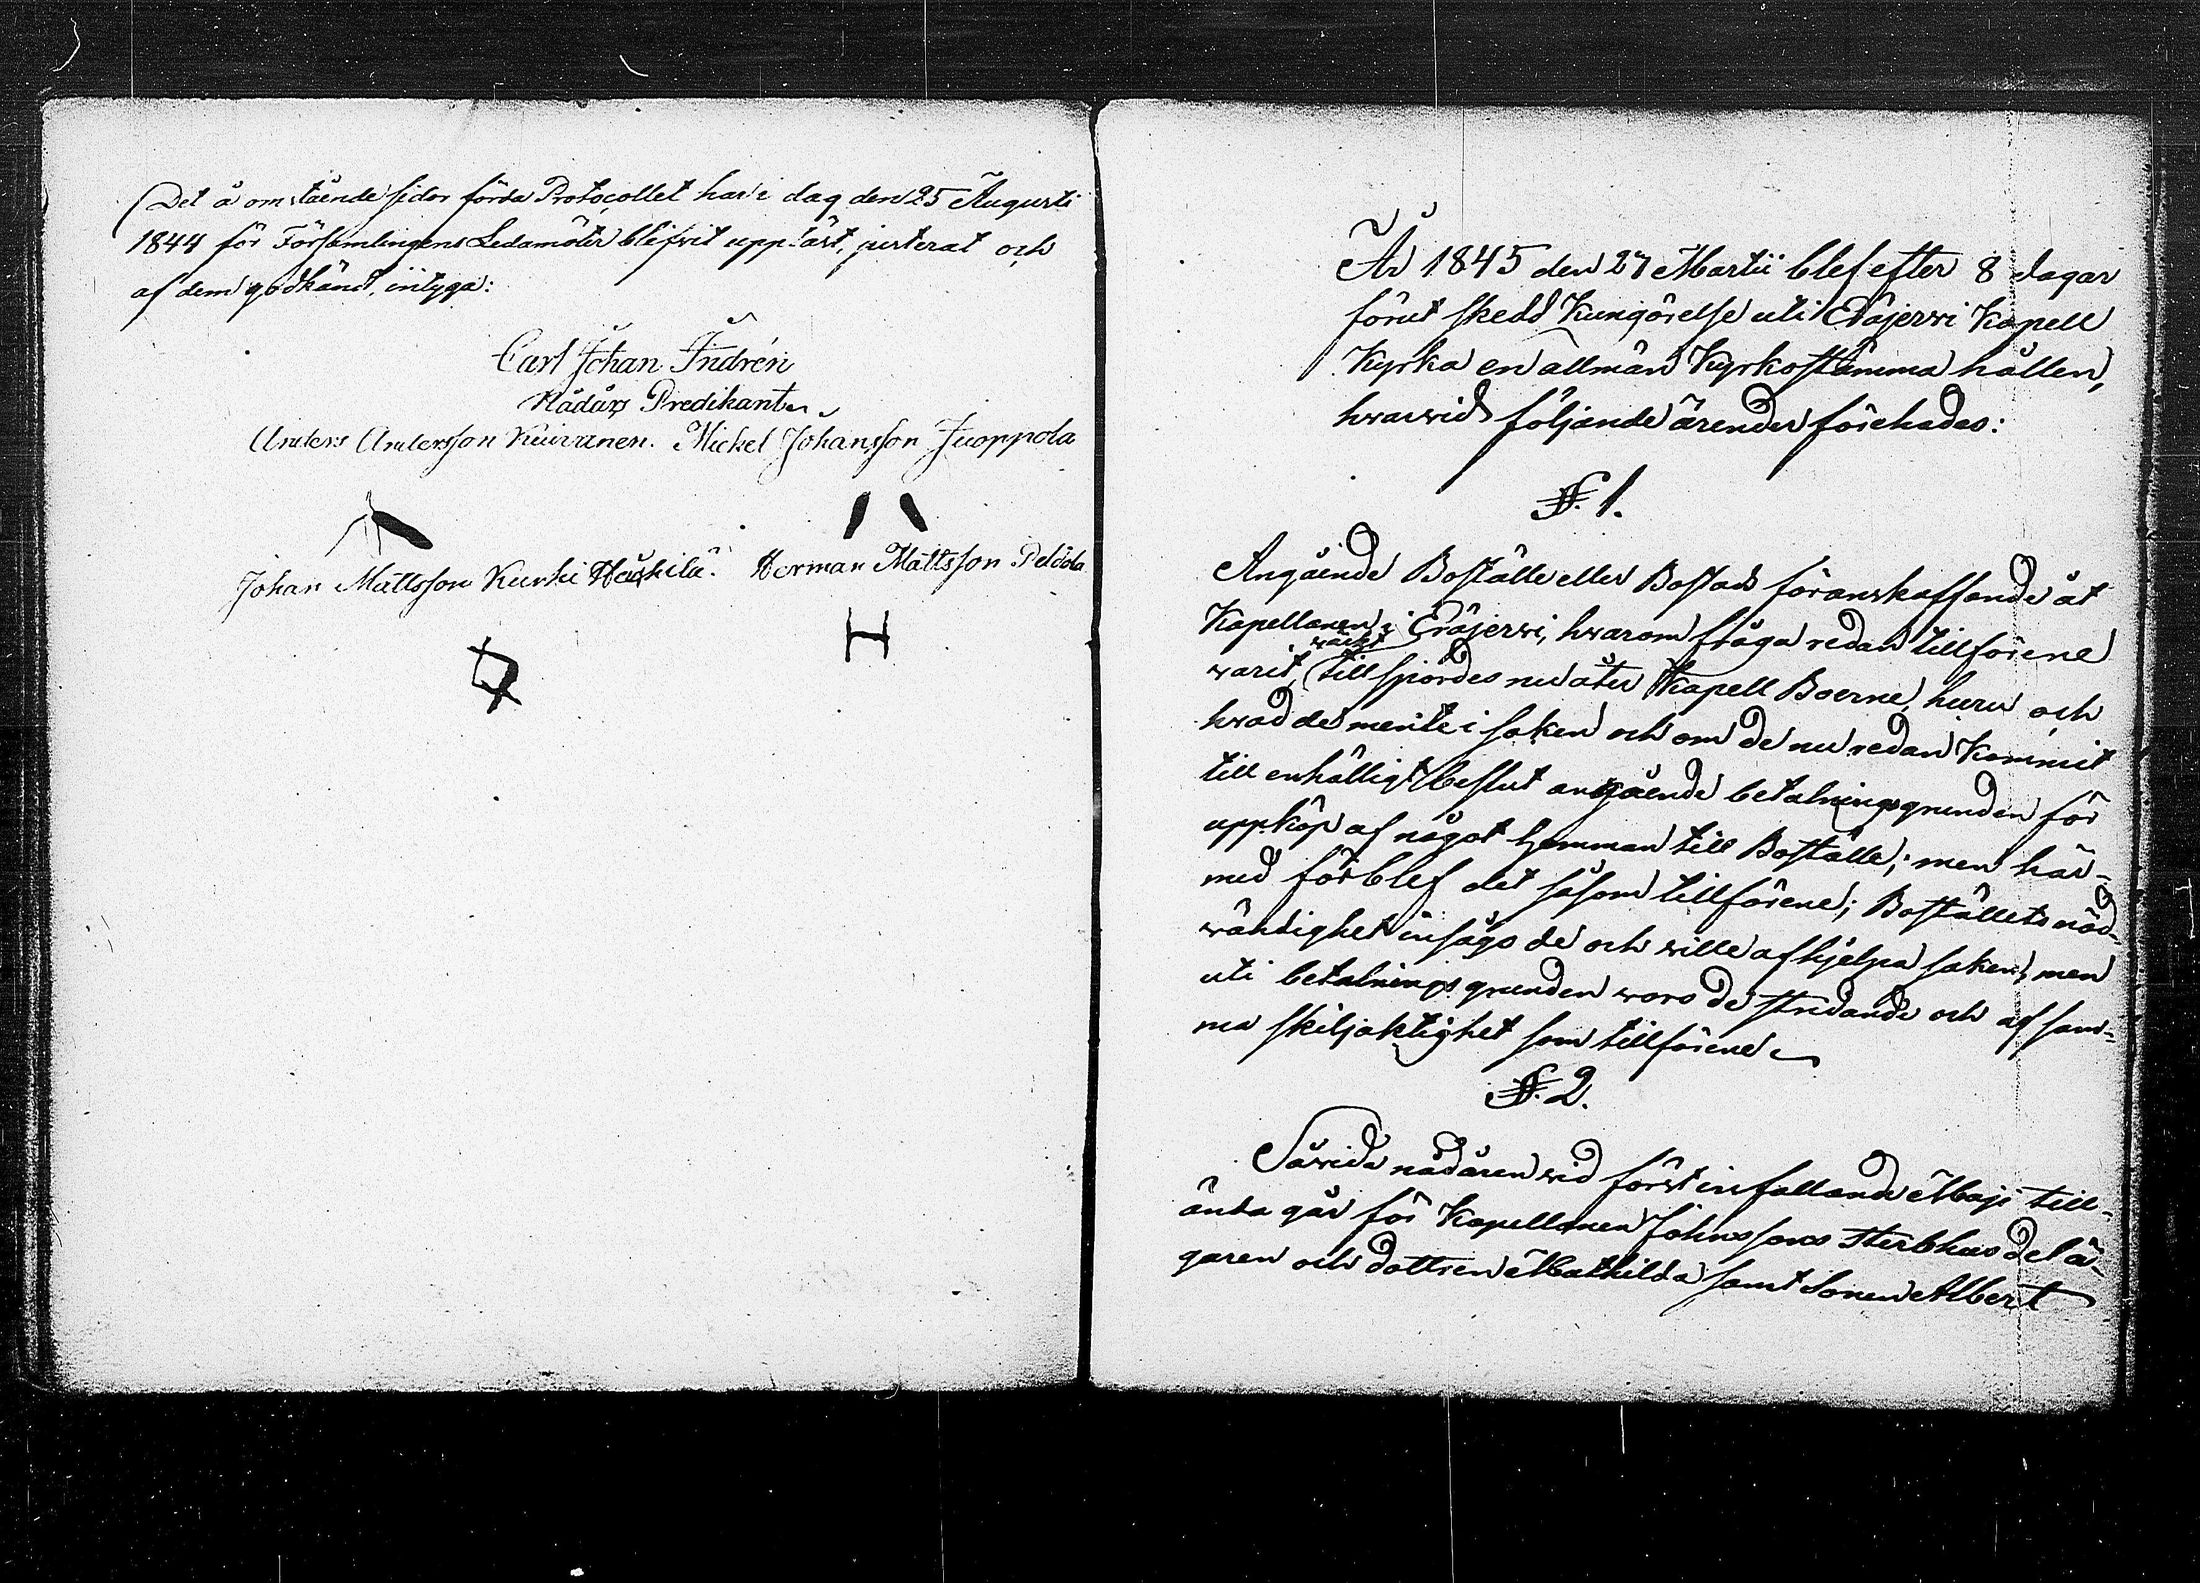 Det å omstående sidor förda Protocollet har i dag den 25 Augusti
1844 för Församlingens Ledamöter blifvit uppläst, justerat och
af dem godkändt, intyga:
Carl Johan Indrén
Nådårs Predikant
Anders Andersson Kuivanen. Mickel Johansson Juoppola
Johan Mattsson Kurki Heikkilä. Herman Mattsson Peldola
H
År 1845 den 27 Martii blef efter 8 dagar
förut skedd Kungörelse uti Eräjerwi Kapell
Kyrka en allmän Kyrkostämma hållen,
hwarwid följande ärender förehades:
§. 1.
Angående Boställe eller Bostads föranskaffande åt
Kapellanen i Eräjerwi, hwarom fråga redan tillförene
warit wäckt, tillspordes nu åter Kapell Boerne, huru och
hwad de mente i saken och om de nu redan kommit
till enhälligt beslut angående betalningsgrunden för
uppköp af något hemman till Boställe; men här-
med förblef det såsom tillförene; Boställets nöd-
wändighet insågo de och wille afhjelpa saken, men
uti betalnings grunden woro de stridande och af sam-
ma skiljaktighet som tillförene
§. 2.
Såwida nådåren wid först infallande Maji till-
ända går för Kapellanen Johnssons Sterbhus delä-
garen och dottren Mathilda samt Sonen Albert